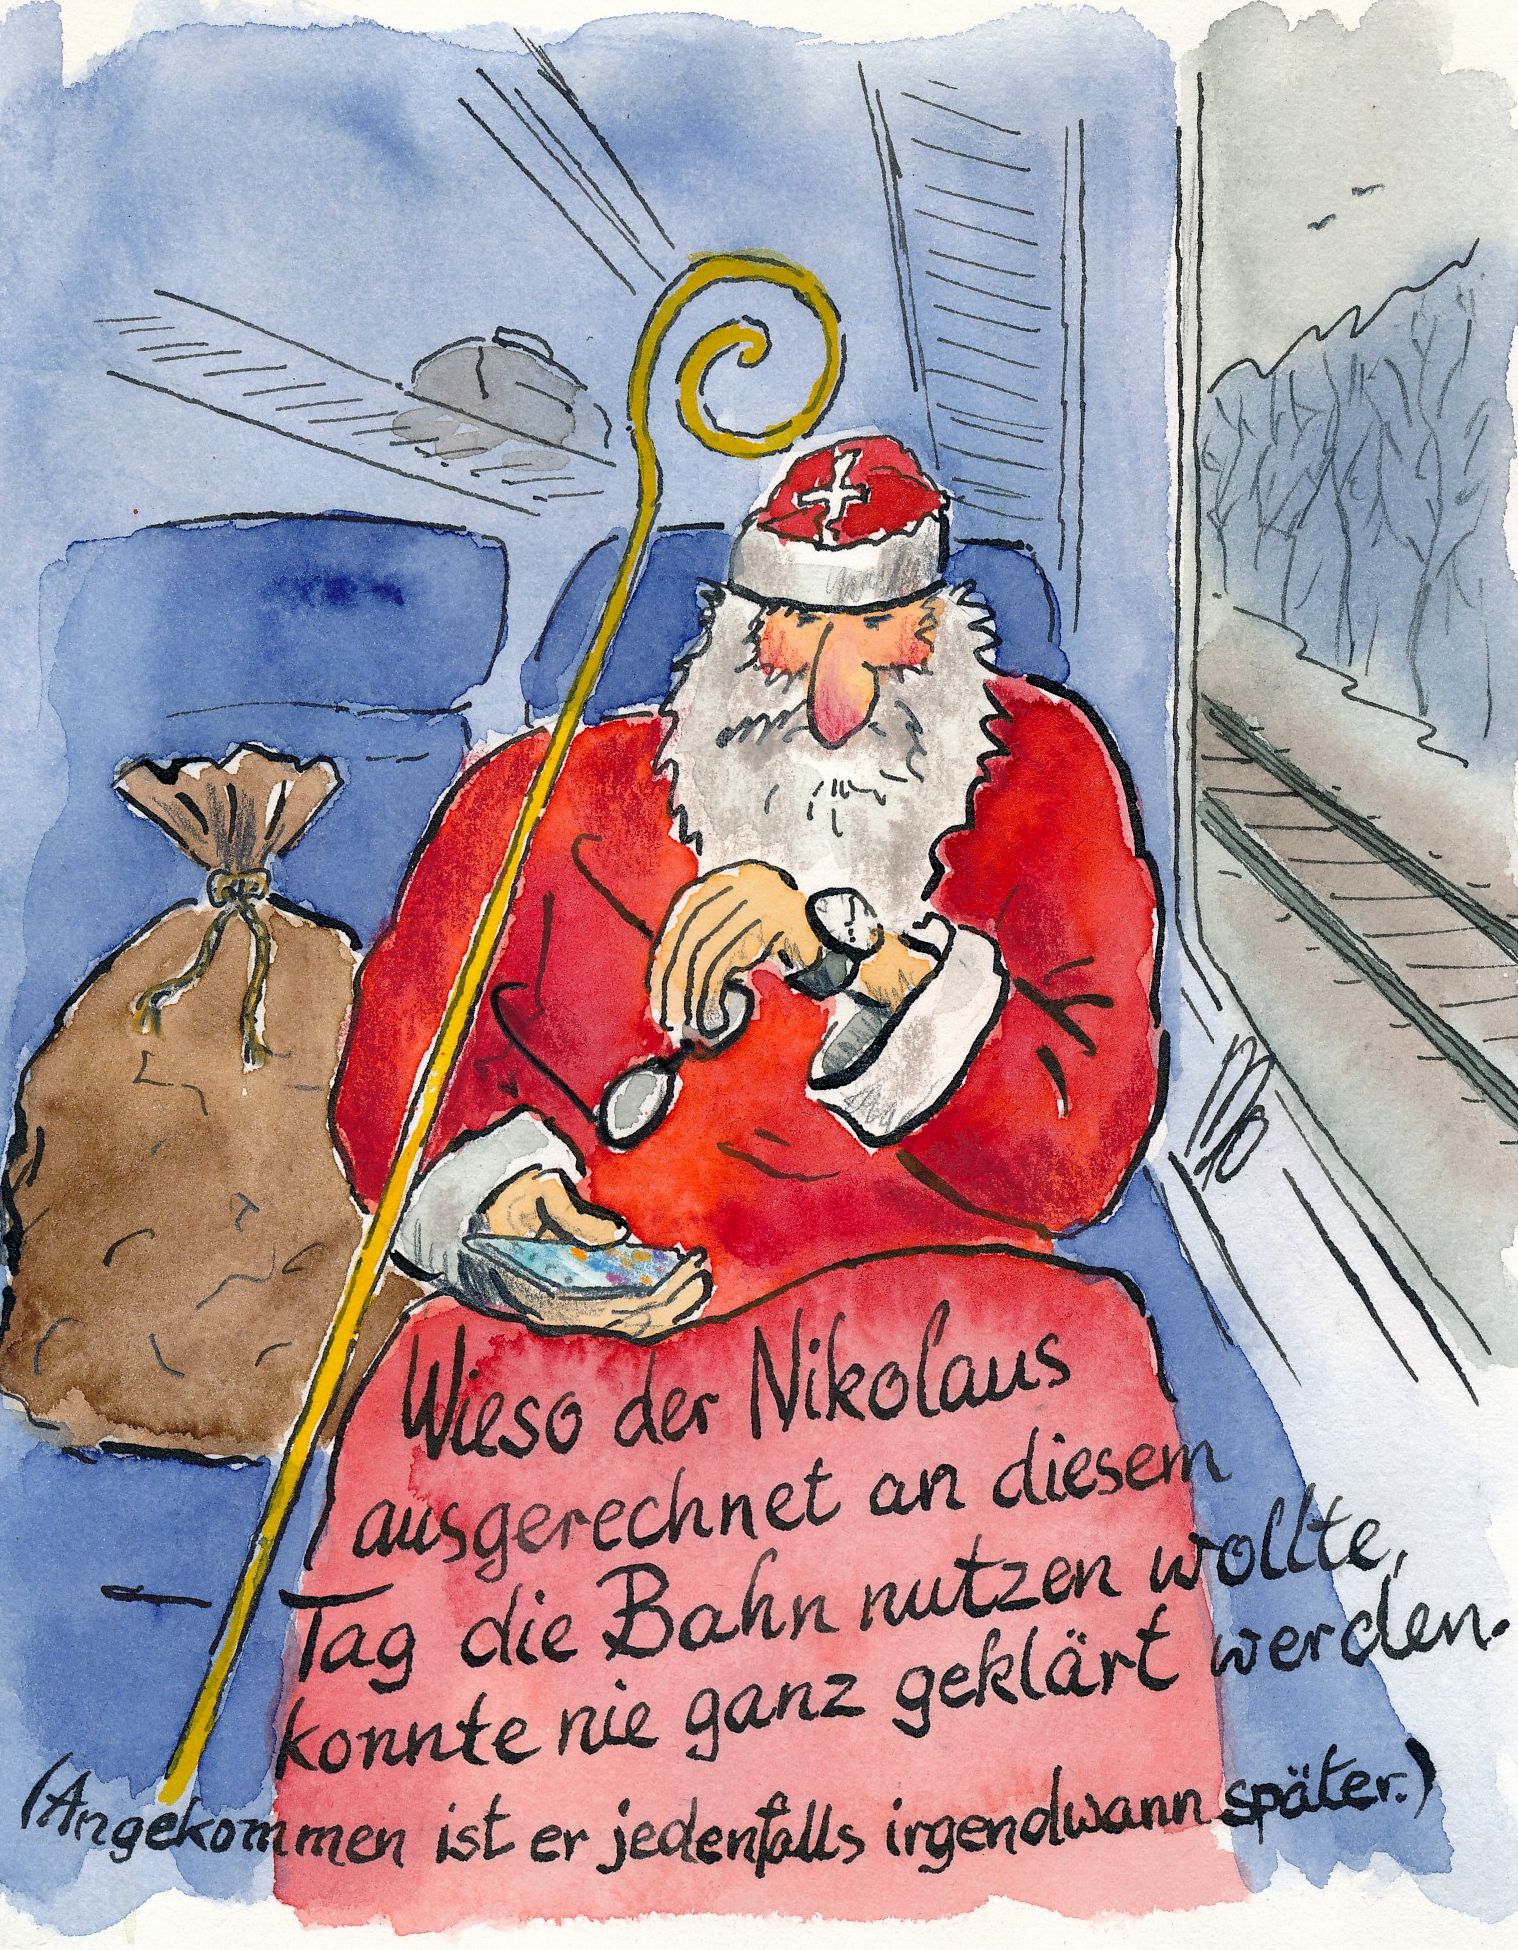 Wieso der Nikolaus
ausgerechnet an diesem
Tag die Bahn nutzen wollte,
konnte nie ganz geklärt werden.
(Angekommen ist er jedenfalls irgendwann später.)